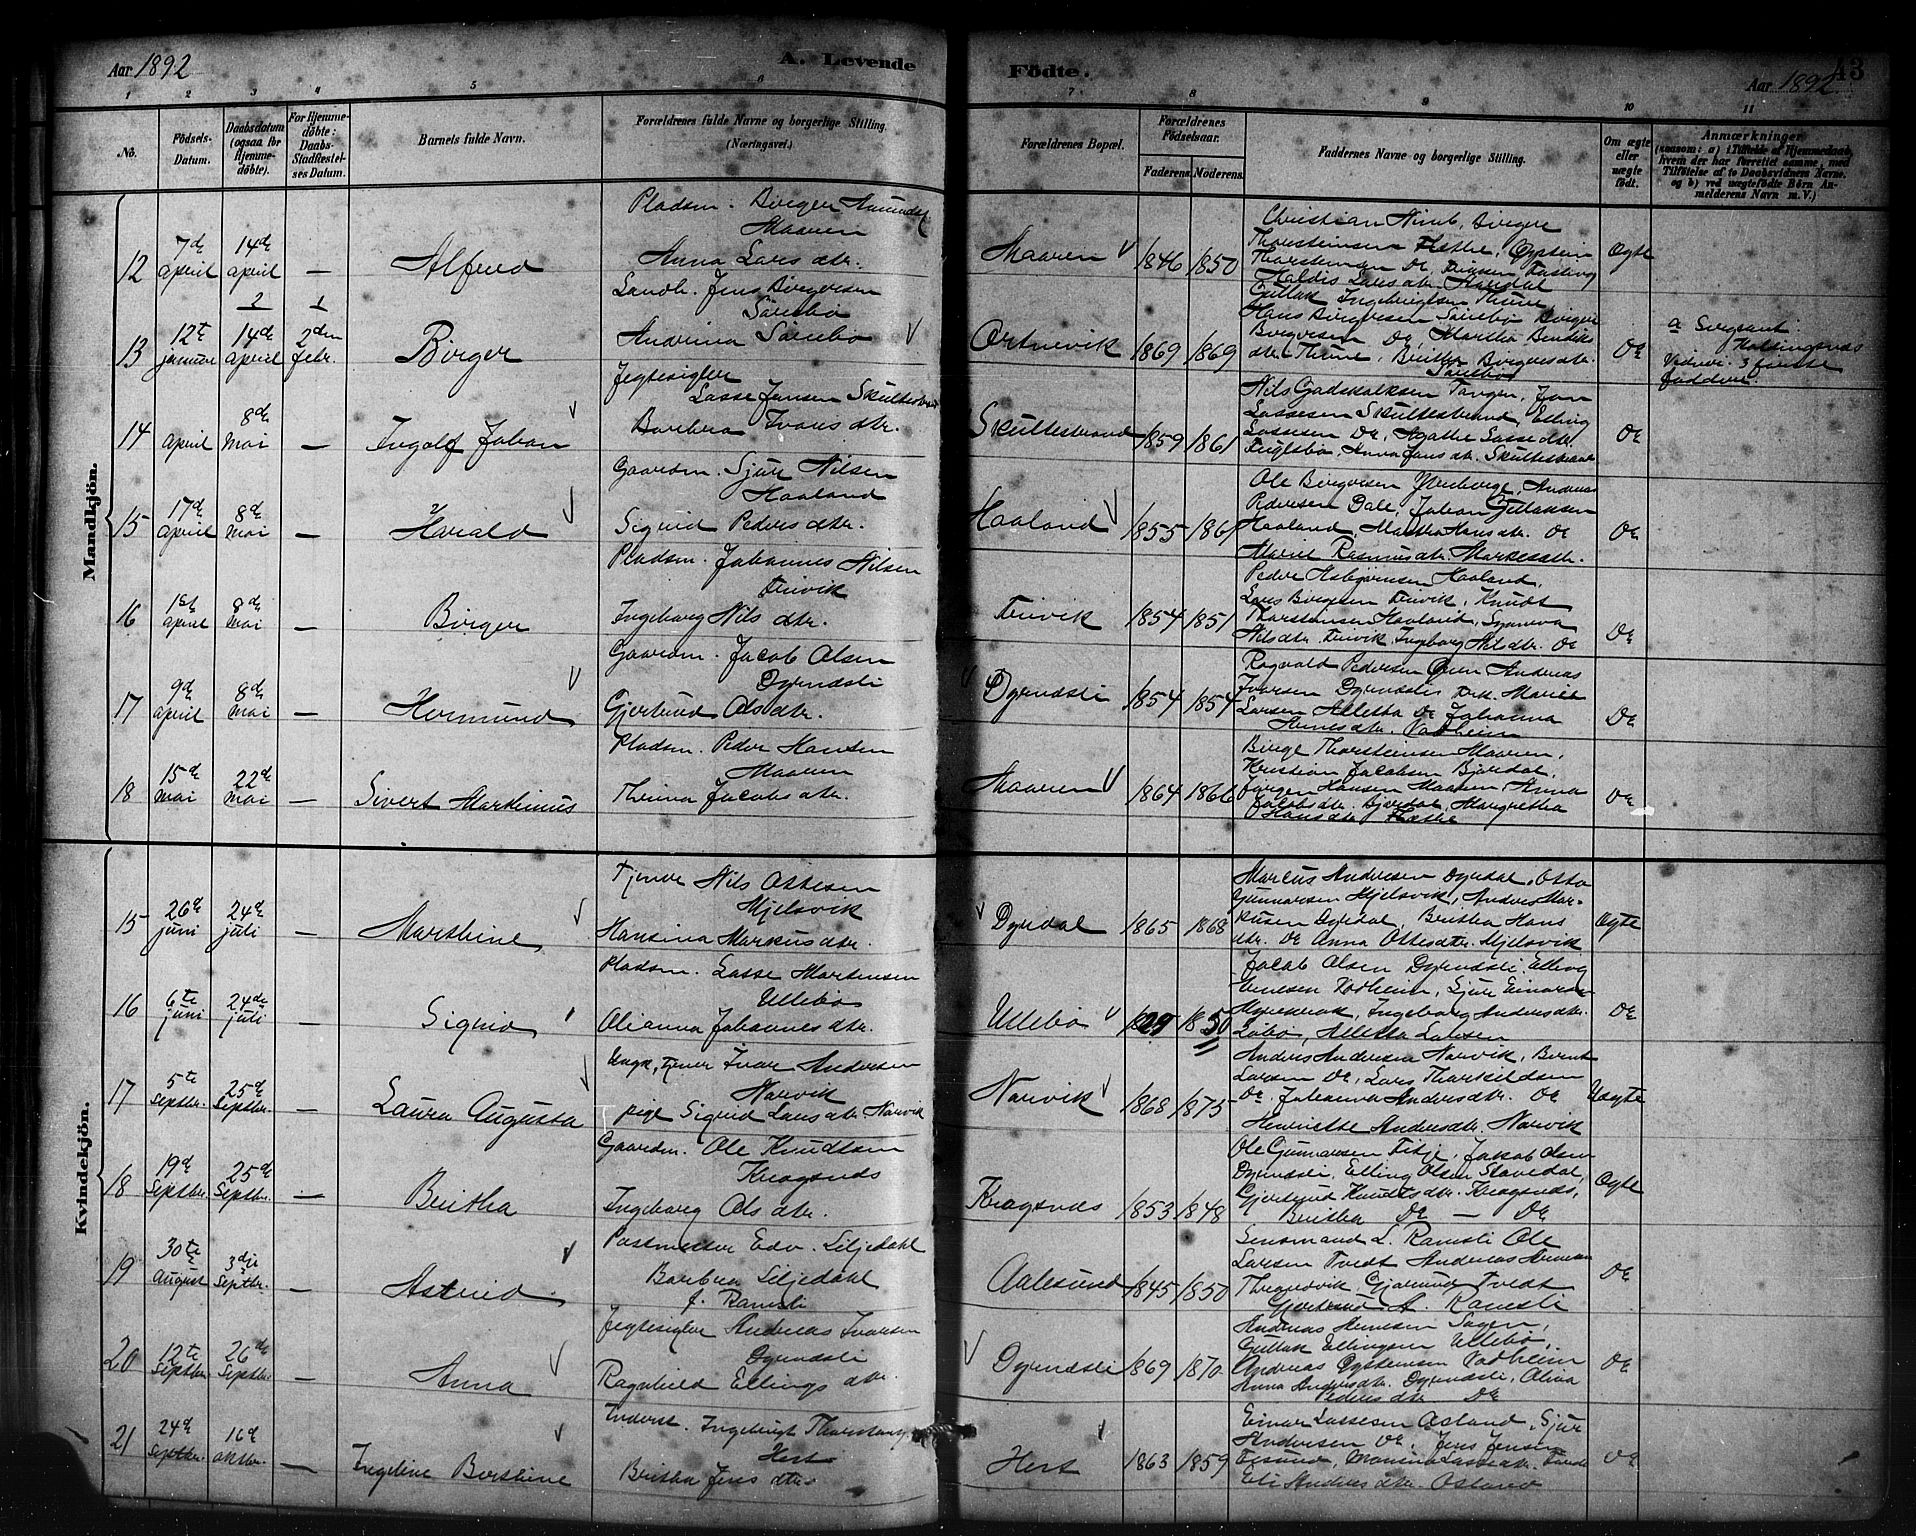 Aar 1892
A. Levende
Födte.
43
Aar 1892
1 2 3 4 5 6 7 8 9 10 11
No.
Födsels-Datum.
Daabsdatum (ogsaa for Hjemmedøbte).
For Hjemmedøbte: Daabs-Stadfæstelses Datum.
Barnets fulde Navn.
Forældrenes fulde Navne og borgerlige Stilling. (Næringsvei.)
Forældrenes Bopæl.
Forældrenes Födselsaar.
Faderens. Moderens.
Faddernes Navne og borgerlige Stilling.
Om ægte eller uægte født.
Anmærkninger
(saasom: a) i Tilfælde af Hjemmedaab, hvem der har forrettet samme, med Tilføielse af to Daabsvidners Navne, og b) ved uægtefødte Börn Anmelderens Navn m. V.)
Mandkjön.
12 7de april 14de april — Alfred
Pladsm. Børger Amundsen
Maaren
Anna Lars dtr.
Maaren 1846 1850
Christian Nimb, Børger
Thorsteinsen Flæthe, Øystein
Thorsteinsen De,
Haldis Larsdtr.
Ægte
13 12te januar 14de april 2den febr. Børger
Landh. Jens Børgersen
Sørebø
Andrina Sørebø
Ortnevik 1869 1869
Gullak Ingebrigtsen Thune
Hans Børgersen Sørebø Børger
Børgersen De, Martha Bendiks
dtr. Thune, Britha Børgersdtr.
Sørebø
De
a Sergeant
3 første
faddere
14 april 8de Mai — Ingolf Johan
Jegteseigler
Lasse Jensen Skultestrand
Barbra Ivers dtr.
Skultestrand 1859 1861
Nils Gadskalksen Tangen, Jon
Lassesen Skultestrand, Elling
Lassesen De, Agathe Lassedtr.
Fuglsbø, Anna Jensdtr. Skultestrand
De
15 17de april 8de Mai — Harald
Gaardm. Sjur Nilsen
Haaland
Sigrid Peders dtr.
Haaland 1855 1861
Ole Børgersen Ytreborge, Andreas
Pedersen Dale, Johan Gullaksen
Haaland, Martha Hansdtr. De
Marie Rasmusdtr.
De
16 1st april 8de Mai — Børger
Pladsm. Johannes Nilsen
Teivik
Ingeborg Nils dtr.
Teivik 1854 1851
Peder Asbjørnsen Haaland,
Lars Børgersen Teivik, Knudt
Thorstensen Haaland, Synneva
Nilsdtr. Teivik, Ingeborg Nilsdtr. De
De
17 9de april 8de Mai — Hermund
Gaardm. Jacob Olsen
Dyrndsli
Gjertrud Ols dtr.
Dyrndsli 1854 1854
Ragvald Pedersen Øren Andreas
Iversen Dyrndsli
Larsen Alletha De Johanna
Vadheim
De
18 15de Mai 22de Mai — Sivert Marthinus
Pladsm. Peder Hansen
Maaren
Thrina Jacobs dtr.
Maaren 1864 1866
Børge Thorsteinsen Maaren,
Kristian Jacobsen Bjordal,
Jørgen Hansen Maaren, Anna
Jacobsdtr. Bjordal, Margretha
Hansdtr. Flæthe
De
Kvindekjön.
15 26de juni 24de juli — Marthine
Tjener Nils Ottesen
Mjelsvik
Hansina Markus dtr.
Dyrdal 1865 1868
Marcus Andersen Dyrdal, Otto
Gunnarsen Mjelsvik, Anders Mar-
kusen Dyrdal, Britha Hans
dtr. De Anna Ottesdtr. Mjelsvik
Ægte
16 6te juni 24de juli — Sigrid
Pladsm. Lasse Mortensen
Ullebø
Olianna Johannes dtr.
Ullebø 1850
Jacob Olsen Dyrndsli, Elling
Vadheim, Sjur Einarsen
Ingeborg Andersdtr.
Alletha Larsen
De
17 5te Septbr. 25de Septbr. — Laura Augusta
Ungk, tjener Ivar Andersen
Narvik
pige Sigrid Larsdtr. Narvik
Narvik 1868 1875
Anders Andersen Narvik, Bernt
Larsen De, Lars Thorkildsen
De, Johanna Andersdtr. De
Henriette Andersdtr. Narvik
Uægte
18 19de Septbr. 25de Septbr. — Britha
Gaardm. Ole Knudtsen
Kragsnds
Ingeborg Ols dtr.
Kragsnds 1853 1848
Ole Gunnarsen Titje, Jakob Olsen
Dyrndsli, Elling Olsen Stavedal,
Gjertrud Knudtsdtr. Kragsnds,
Britha De — De
Ægte
19 30te August 3dje Septbr. — Astrid
Postmester Edv. Liljedahl
Barbra Liljedahl
f. Ramsli
Aalesund 1845 1850
Lensmand L. Ramsli Ole
Larsen Tvedt Andreas
Tvedt
Gjertrud A. Ramsli
De
20 12te Septbr. 26de Septbr. — Anna
Jegteseigler Andreas Ivarsen
Dyrndsli
Ragnhild Ellings dtr.
Dyrndsli 1869 1870
Andreas
Gullak Ellingsen Ullebø,
Andreas Øystensen Vadheim
Anna Andersdtr. Dyrndsli, Olina
Peders dtr. De
De
21 24de Septbr. 16de oktbr. — Ingeline Berthine
Inderst. Ingebrigt
Hest
Britha Jens dtr.
Hest 1863 1859
Einar Lassesen Asland, Sjur
Andersen De, Jens Jensen
Eli Anders dtr. Osland
De